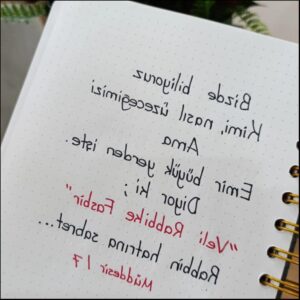 Bizde biliyoruz
Kimi, nasıl üzeceğimizi
Ama
Emir büyük yerden işte.
Diyor ki;
"Veli Rabbike Fasbir"
Rabbin hatrına sabret...
Müddesir / 7